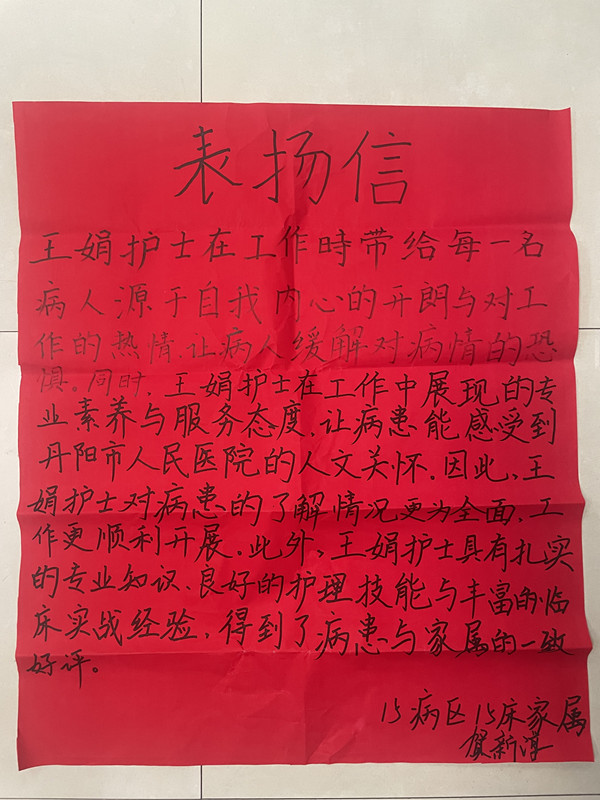 表扬信
王娟护士在工作時带给每一名
病人源于自我内心的开朗与对工
作的热情,让病人缓解对病情的恐
惧。同时,王娟护士在工作中展现的专
业素养与服务态度,让病患能感受到
丹阳市人民医院的人文关怀。因此,王
娟护士对病患的了解情况更为全面,工
作更顺利开展。此外,王娟护士具有扎实
的专业知识、良好的护理技能与丰富的临
床实战经验,得到了病患与家属的一致
好评。
15病区15床家属
贺新淳